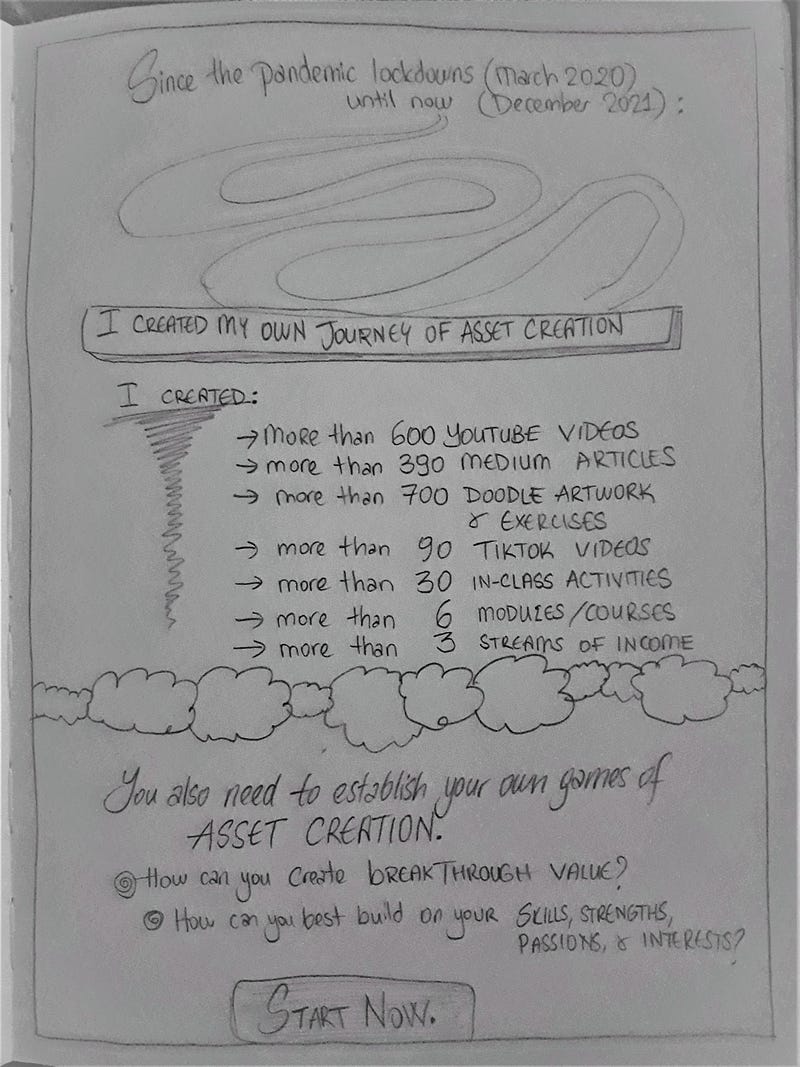 Since the pandemic lockdowns (March 2020)
until now (December 2021):
I CREATED MY OWN JOURNEY OF ASSET CREATION
I CREATED:
→ more than 600 YOUTUBE VIDEOS
→ more than 390 MEDIUM ARTICLES
→ more than 700 DOODLE ARTWORK
& EXERCISES
→ more than 90 TIKTOK VIDEOS
→ more than 30 IN-CLASS ACTIVITIES
→ more than 6 MODULES/COURSES
→ more than 3 STREAMS OF INCOME
You also need to establish your own games of
ASSET CREATION.
How can you create BREAKTHROUGH VALUE?
How can you best build on your SKILLS, STRENGTHS,
PASSIONS, & INTERESTS?
START NOW.